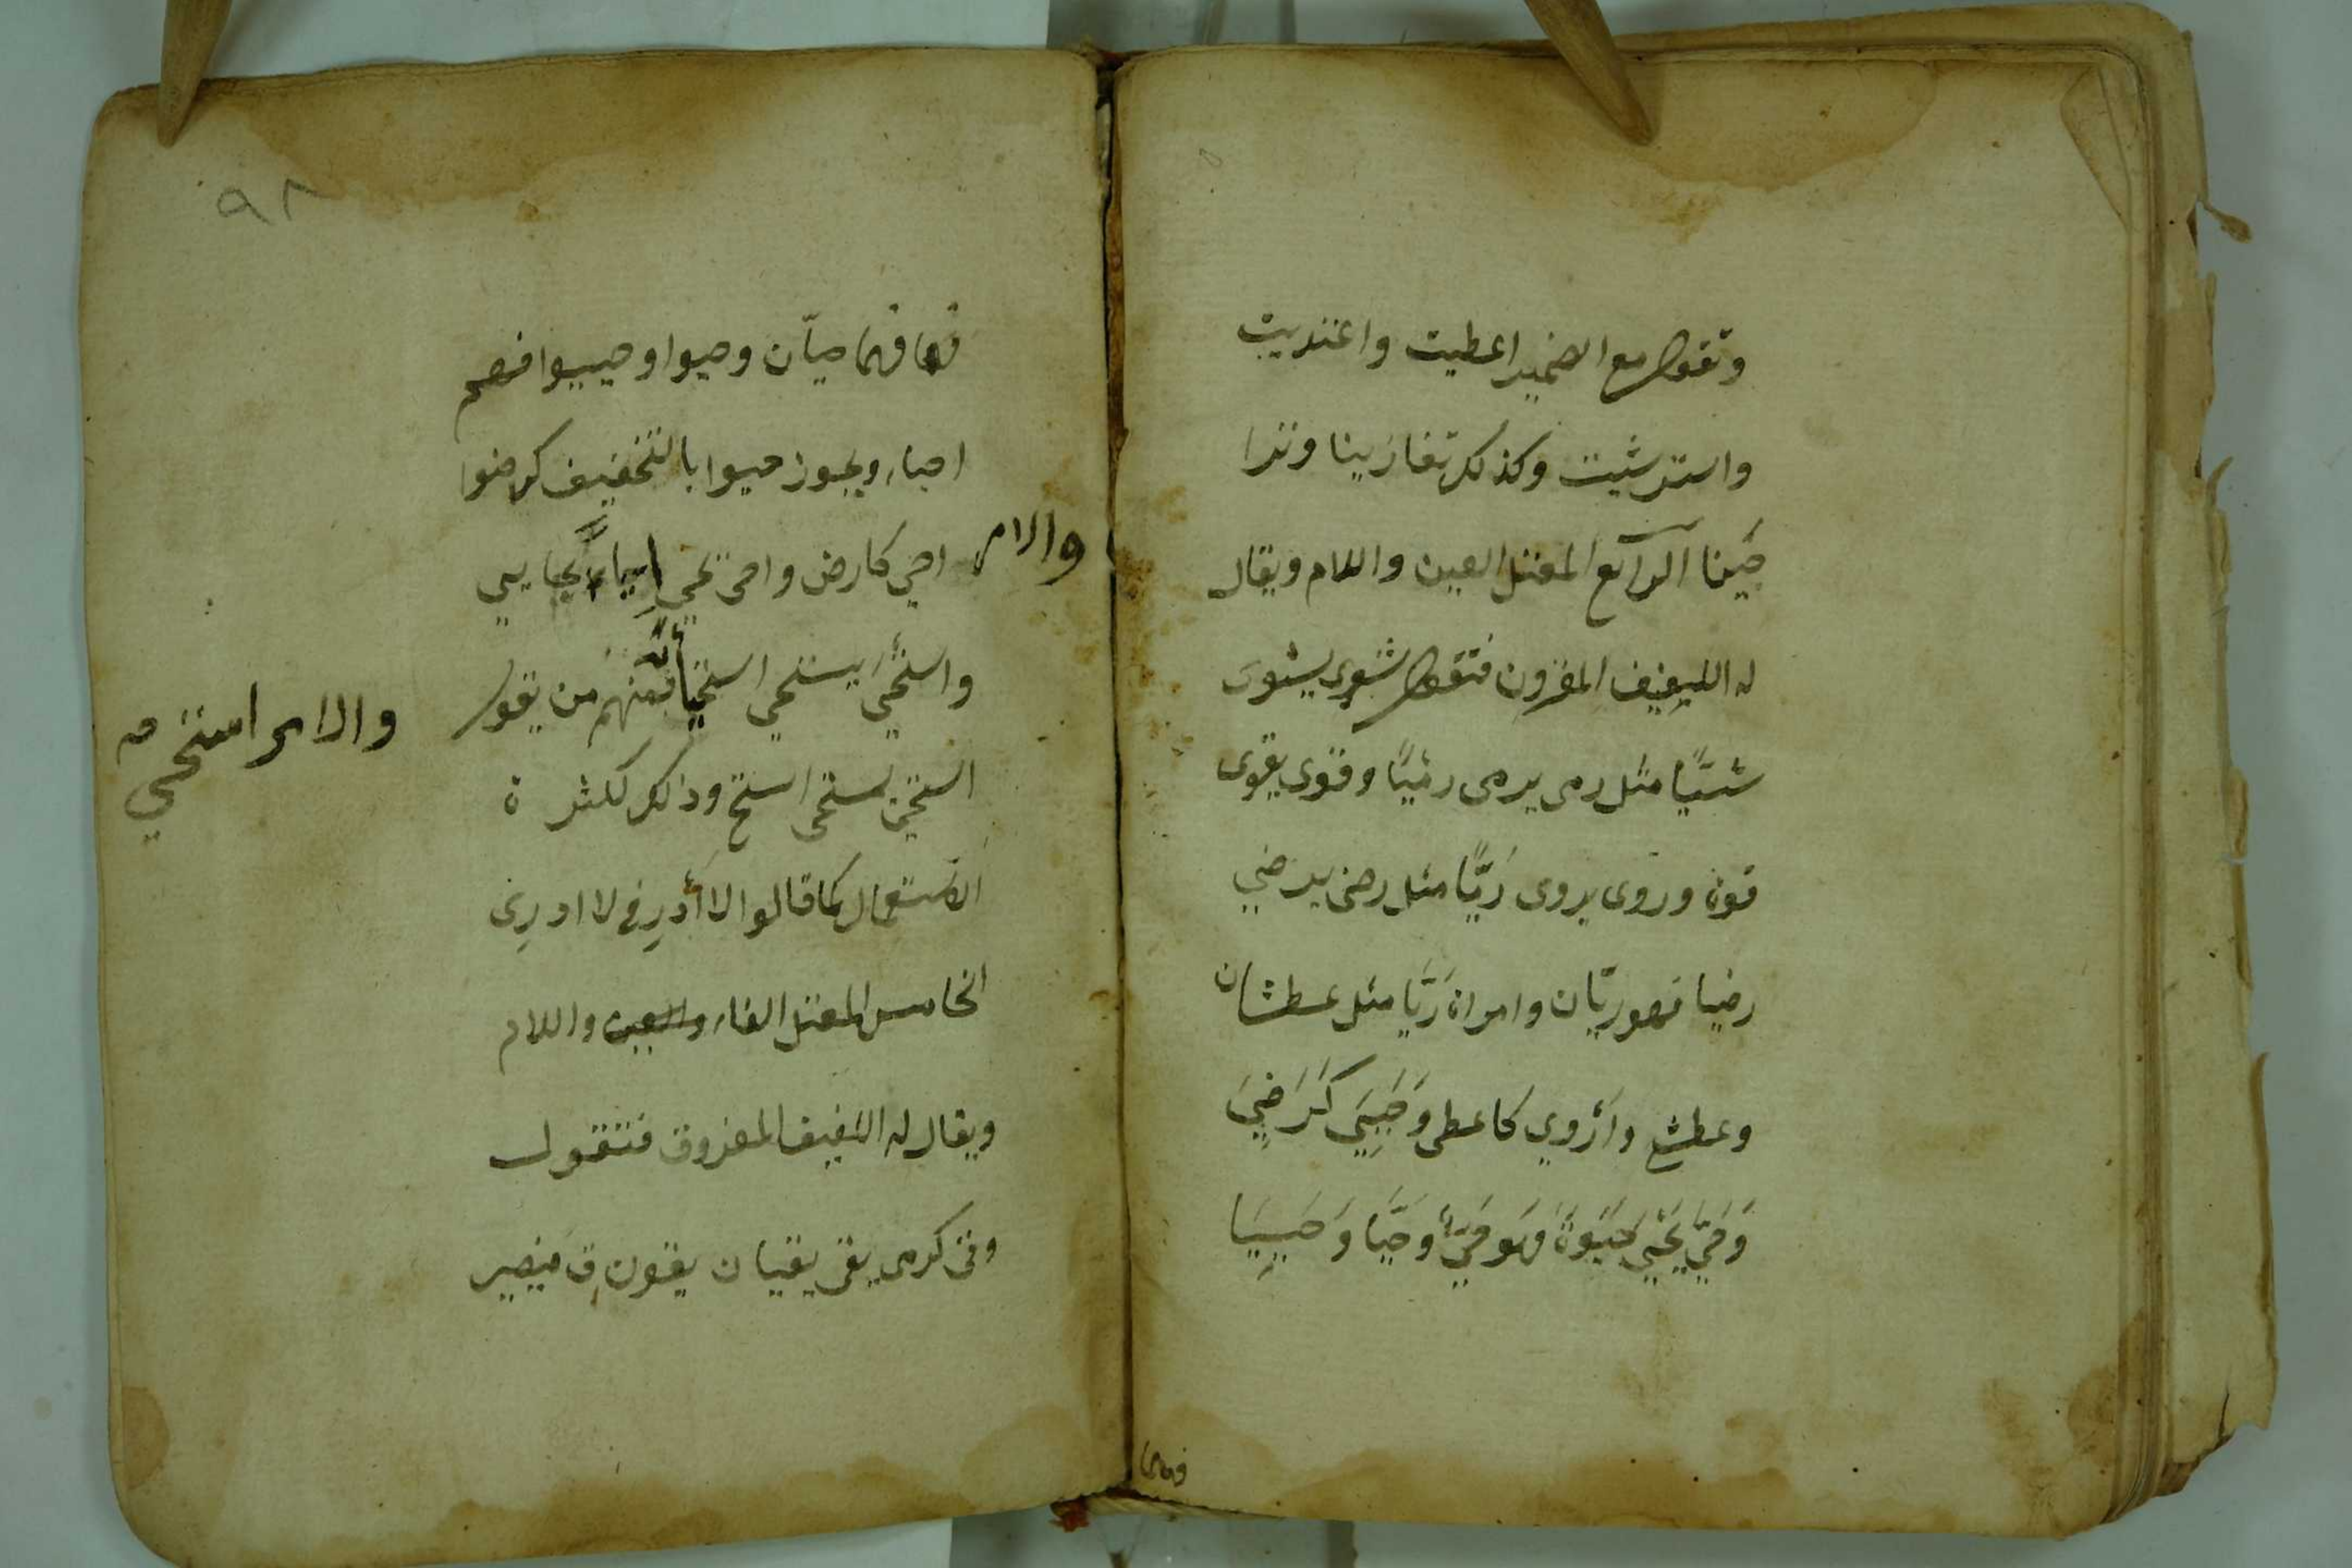 وتقول مع الضمير اعطيت واعتديت
واسترشيت وكذلك تغازينا وترا
ضَينا الرابع المعتل العين واللام ويقال
له اللفيف المقرون فتقول شوى يشوى
شيًّا مثل رمى يرمى رميًا وقوى يقوى
قوة وروى يروى رَيًّا مثل رضى يرضي
رضيا فهو ريّان وامراة رَيَّا مثل عطشان
وعطشى وأروي كاعطى وَحَيِيَ كَرَضِيَ
وَحَيَّ يَحْيَي حَيَوةً فهَو حَيٌّ وحَيَّا وَحَيِيَا
فهما
٩٨
فهما حيّان وحيوا وحييوا فهم
احياء ويجوز حيوا بالتخفيف كرضوا
والامر احي كارض واحى يحيي إحياءً وحايا يحايي
واستحيَي يستحيي استحياءً فمنهم من يقول
والامر استحيي صح
استحى يستحى استح وذلك لكثرة
الاستعمال كما قالوا لا أدرِ في لا ادرِى
الخامس المعتل الفاء والعين واللام
ويقال له اللفيف المفروق فتقول
وقى كرمى يقى يقيان يقون قِ فيصير